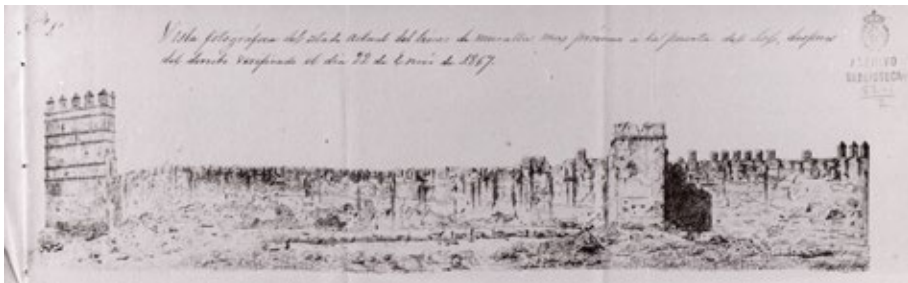 Vista fotográfica del estado actual del lienzo de muralla mas próximo a la puerta del Sol, despues
del derribo verificado el dia 22 de Enero de 1867.
ARCHIVO
BIBLIOTECA